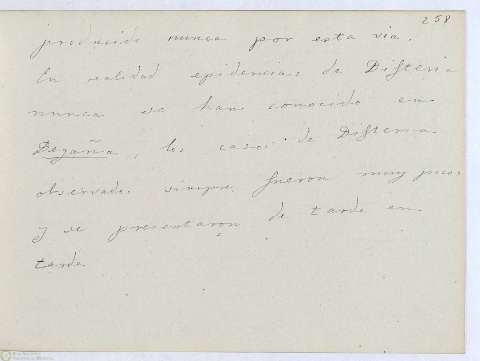 258
producido nunca por esta via.
En realidad epidencias de Difteria
nunca se han conocido en
Degaña, los casos de Difteria
observados siempre fueron muy pocos
y se presentaron de tarde en
tarde.